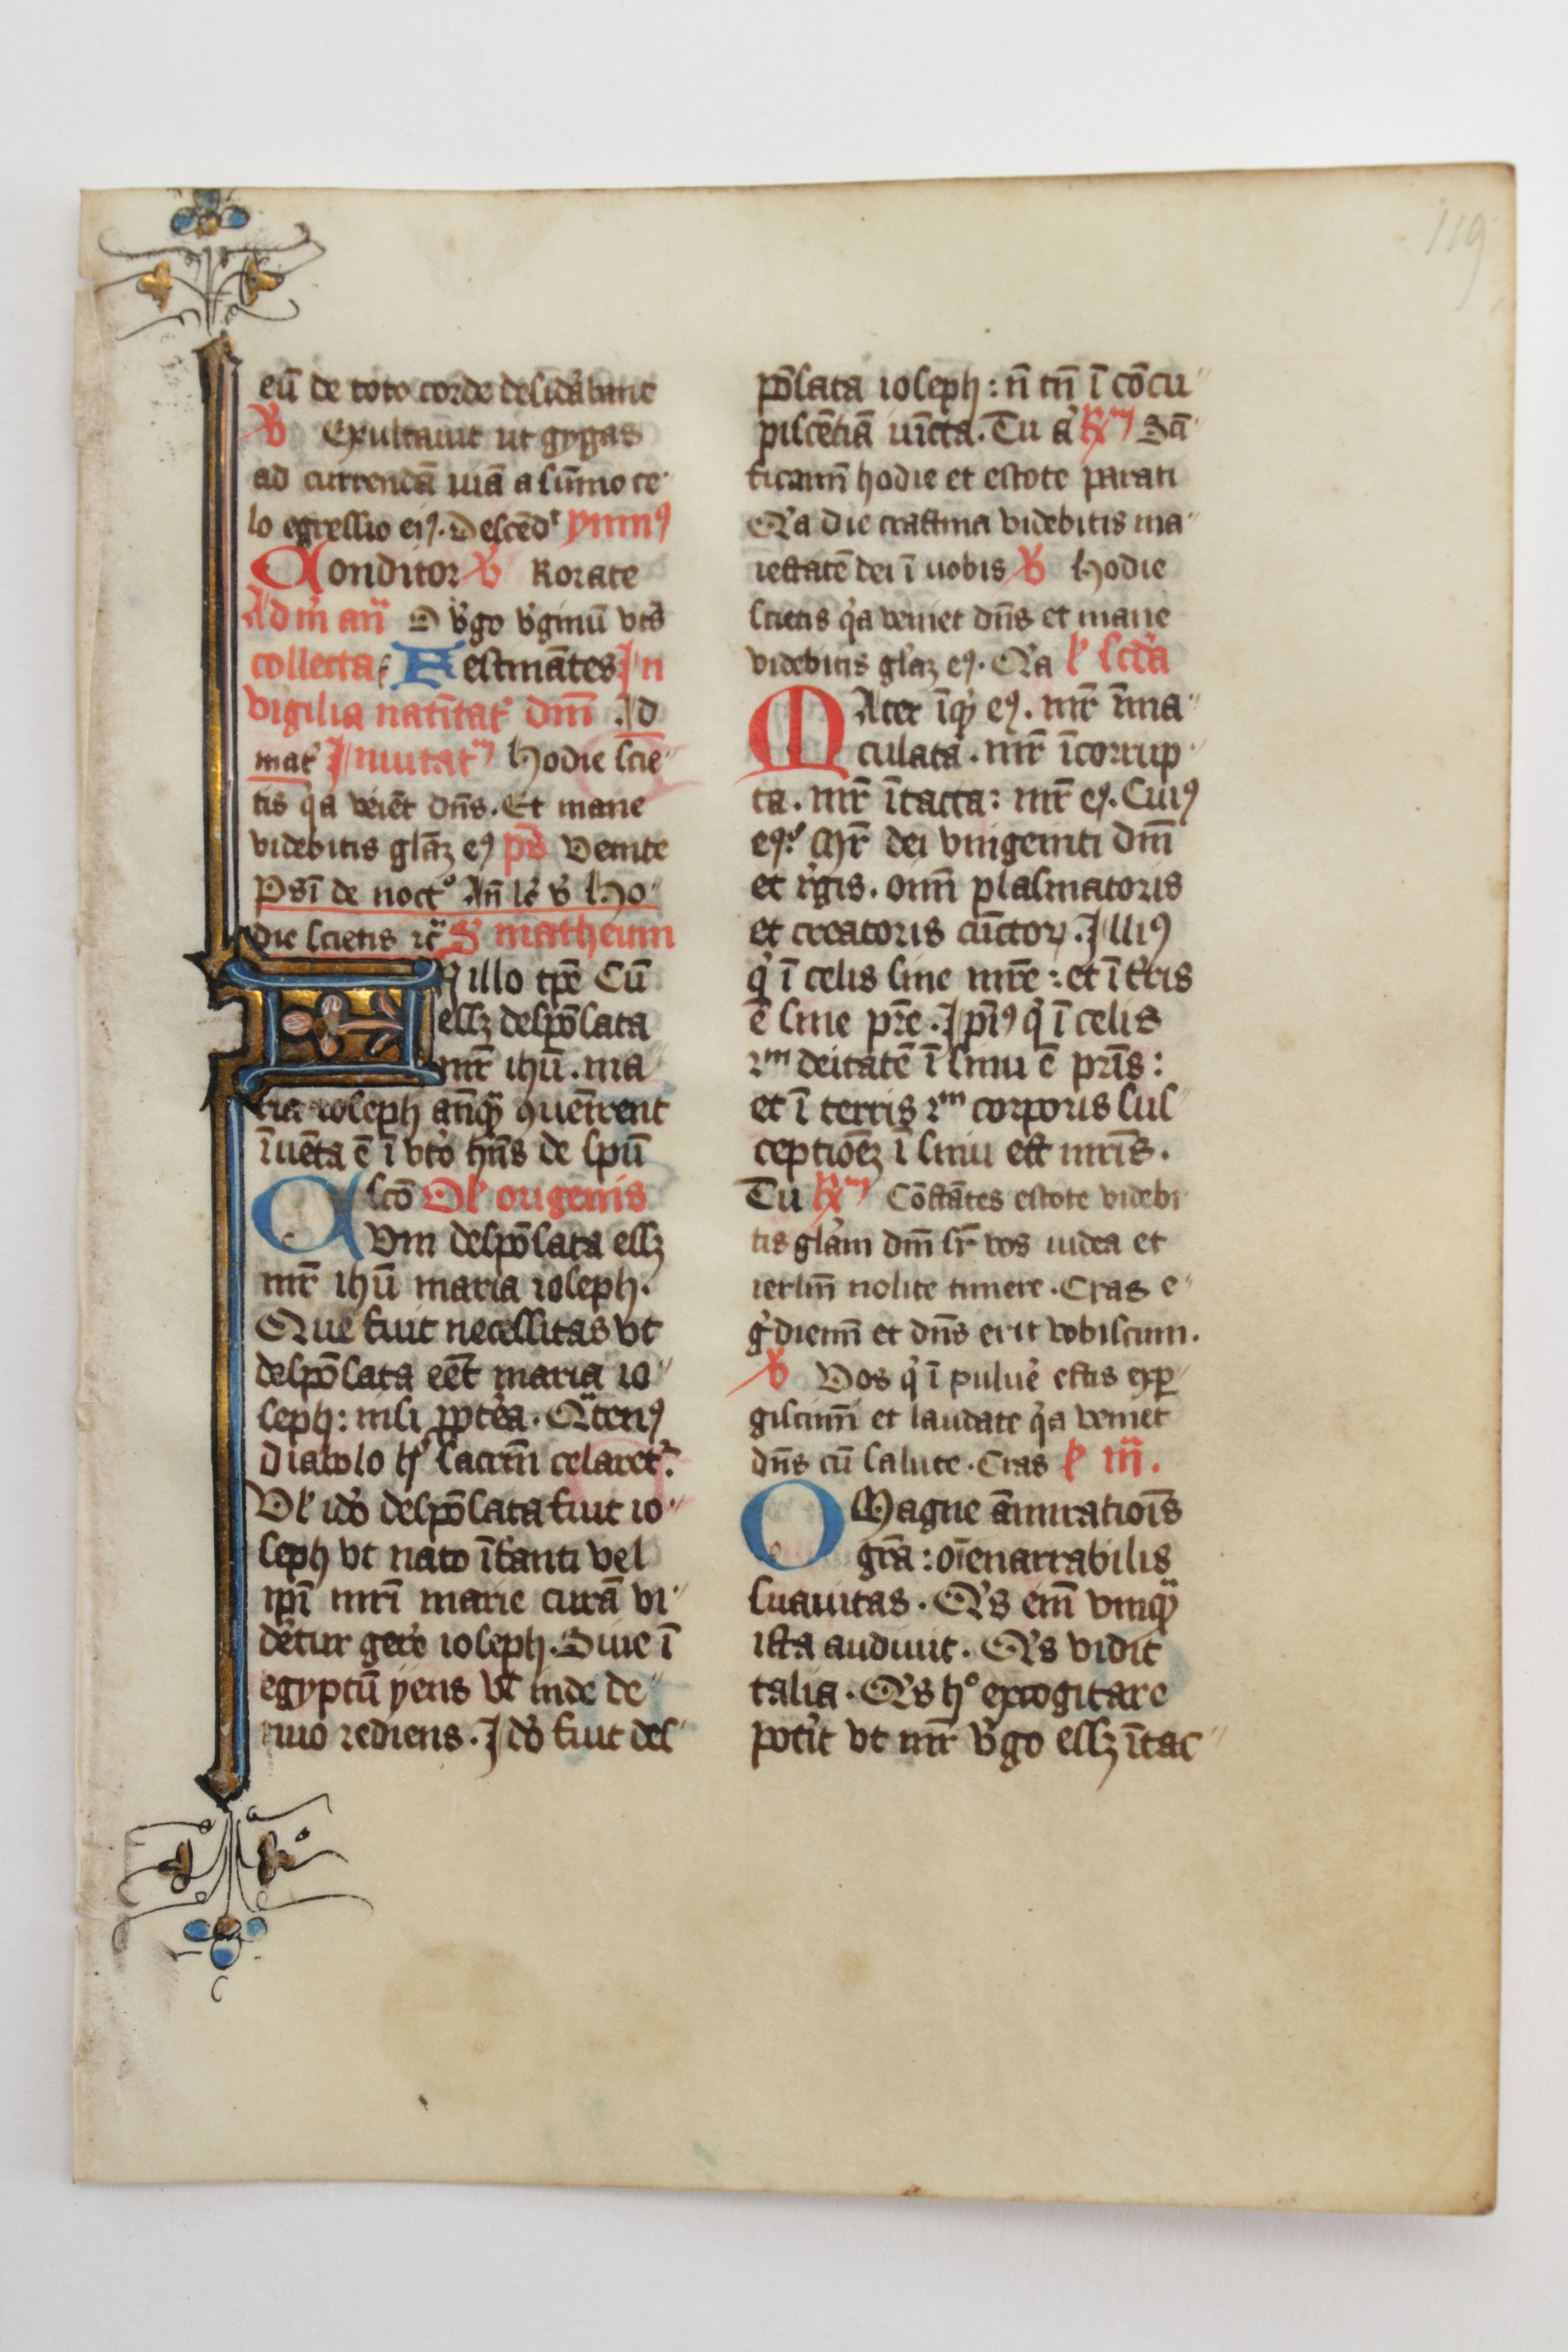 119
eū de toto corde desid'abunt
V Exultauit ut gygas
ad currendā uiā a sūmo ce
lo egressio eiꝰ. Descēdᵗ ymnꝰ
Conditor V Rorate
Ad m̄ an̄ O v'go v'ginū
collecta Festinātes In
vigilia natīitat' dm̄ . Ad
mat' Inuitat Hodie scie
tis q'a veiēt dn̄s. Et mane
videbitis gl'aꝫ eꝰ ps̄ Venite
Psī de noct° An̄ Hō
die scietis matheum
N illo tp̄e Cū
eſſꝫ despōsata
mr̄ ihū. ma
ria ioseph anꝗ̄ ꝯuēnrent
īuēta ē ī vto' hn̄s de spū
scō Ol' origenis
Cvm despōsata eſſꝫ
mr̄ ihū maria ioseph.
Que fuit necessitas vt
despōsata eēt maria io
seph: nisi ꝓpt'ea. Qͣtenꝰ
diabolo h' sacrm̄ celaret?
Vl' idō despōsata fuit io
seph vt nato īfanti vel
ip̄i mr̄i marie curā vi
detur ger'e ioseph. Siue ī
egyptū yens vt inde de
nuo rediens. Idō fuit des
pōsata ioseph: n̄ tn̄ ī cōcu
piscētiā uīcta. Tu a' Rm Scā
ficamī hodie et estote parati
Qa die crastina videbitis ma
iestatē dei ī uobis V Hodie
scietis q'a veniet dn̄s et mane
videbitis gl'aꝫ eꝰ. Qa l' scd'a
MAter īq' eꝰ. mr̄ īma
culata. mr̄ īcorrup
ta. mr̄ ītacta: mr̄ eꝰ. Cuiꝰ
eꝰ? Mr̄ dei vnigeniti dm̄
et r'gis. omī plasmatoris
et creatoris cūctoꝝ. Illiꝰ
q' ī celis sine mr̄e: et ī t'ris
ē sine pr̄e. Ip̄iꝰ q' ī celis
ẜm deitatē ī sinu ē pr̄is:
et ī terris ẜm corporis sus
ceptiōeꝫ ī sinu est mr̄is.
Tu Rm Cōstātes estote videbi
tis gl'am dm̄ sr̄ vos iudea et
ierlm̄ nolite timere. Cras e
g'diemī et dn̄s erit vobiscum.
V Vos q' ī puluē estis exꝑ
giscimī et laudate q'a veniet
dn̄s cū salute. Cras l' iii.
O Magne āmirationīs
grā: oīenarrabilis
suauitas. Qis em̄ vnꝗ̄
ista audiuit. Qis vidit
talia. Qis h° excogitare
pot'it vt mr̄ v'go eſſꝫ ītac